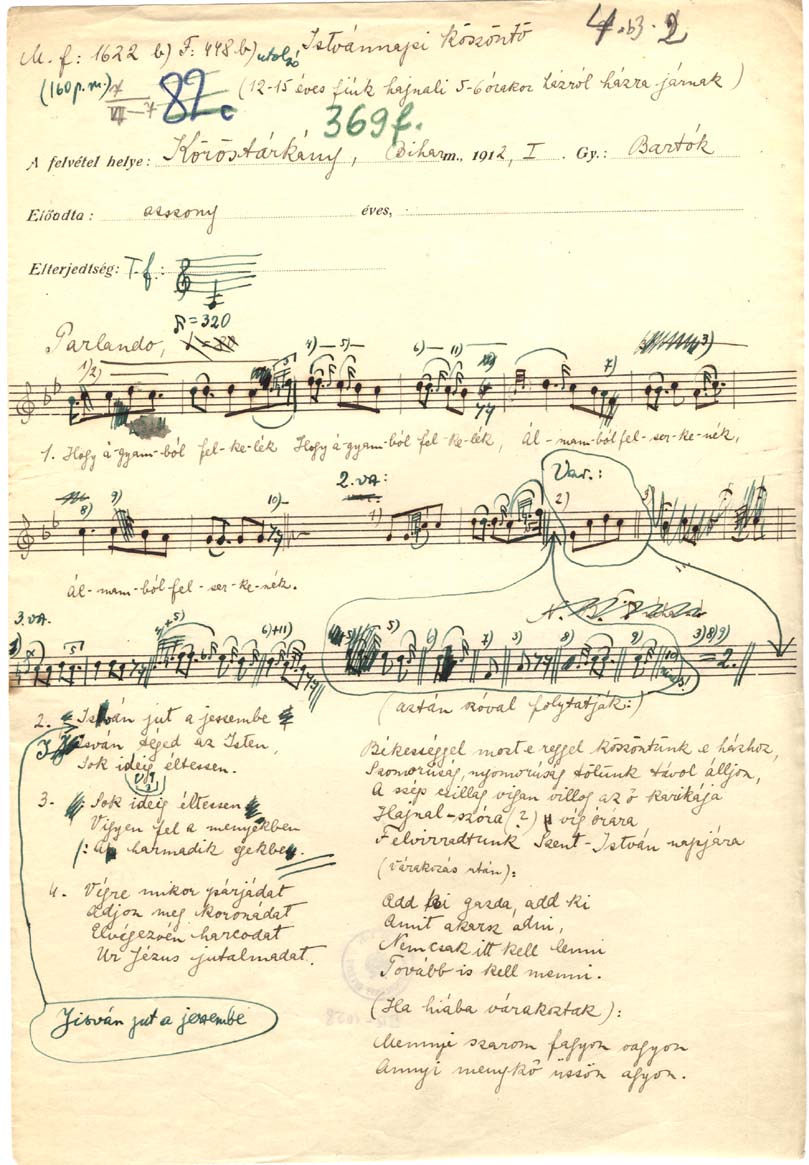 M. f: 1622 b) F: 448 b) utolsó Istvánnapi köszöntő
(160 p. m.) 82c (12-15 éves fiúk hajnali 5-6 órakor házról házra járnak)
369f.
A felvétel helye: Köröstárkány, Bihar m., 1912, I. Gy.: Bartók
Előadta: asszony éves,
Elterjedtség: T. f.:
= 320
Parlando,
1. Hogy á-gyam-ból fel-ke-lék Hogy á-gyam-ból fel-ke-lék, ál-mam-ból fel-ser-ke-nék,
2. va. Var.:
ál-mam-ból fel-ser-ke-nék.
3. va.
2. István jut a jessembe
István téged az Isten,
Sok ideig éltessen.
3. Sok ideig éltessen
Vigyen fel a menyekben
/: A harmadik egekbe
4. Végre mikor párjádat
Adjon meg koronádat
Elvégezvén harcodat
Ur Jézus jutalmadat.
Jisván jut a jessembe
(aztán szóval folytatják:)
Békességgel most e reggel köszöntünk e házhoz,
Szomorúság, nyomorúság tőlünk távol álljon,
A szép csillag vigan villog az ő karikája
Hajnal-szóra (?) víg órára
Felvirradtunk Szent-István napjára
(Várakozás után):
Add ki gazda, add ki
Amit akarsz adni,
Nemcsak itt kell lenni
Tovább is kell menni.
(Ha hiába várakoztak):
Mennyi szarom fagyon vagyon
Annyi menykő üssön agyon.